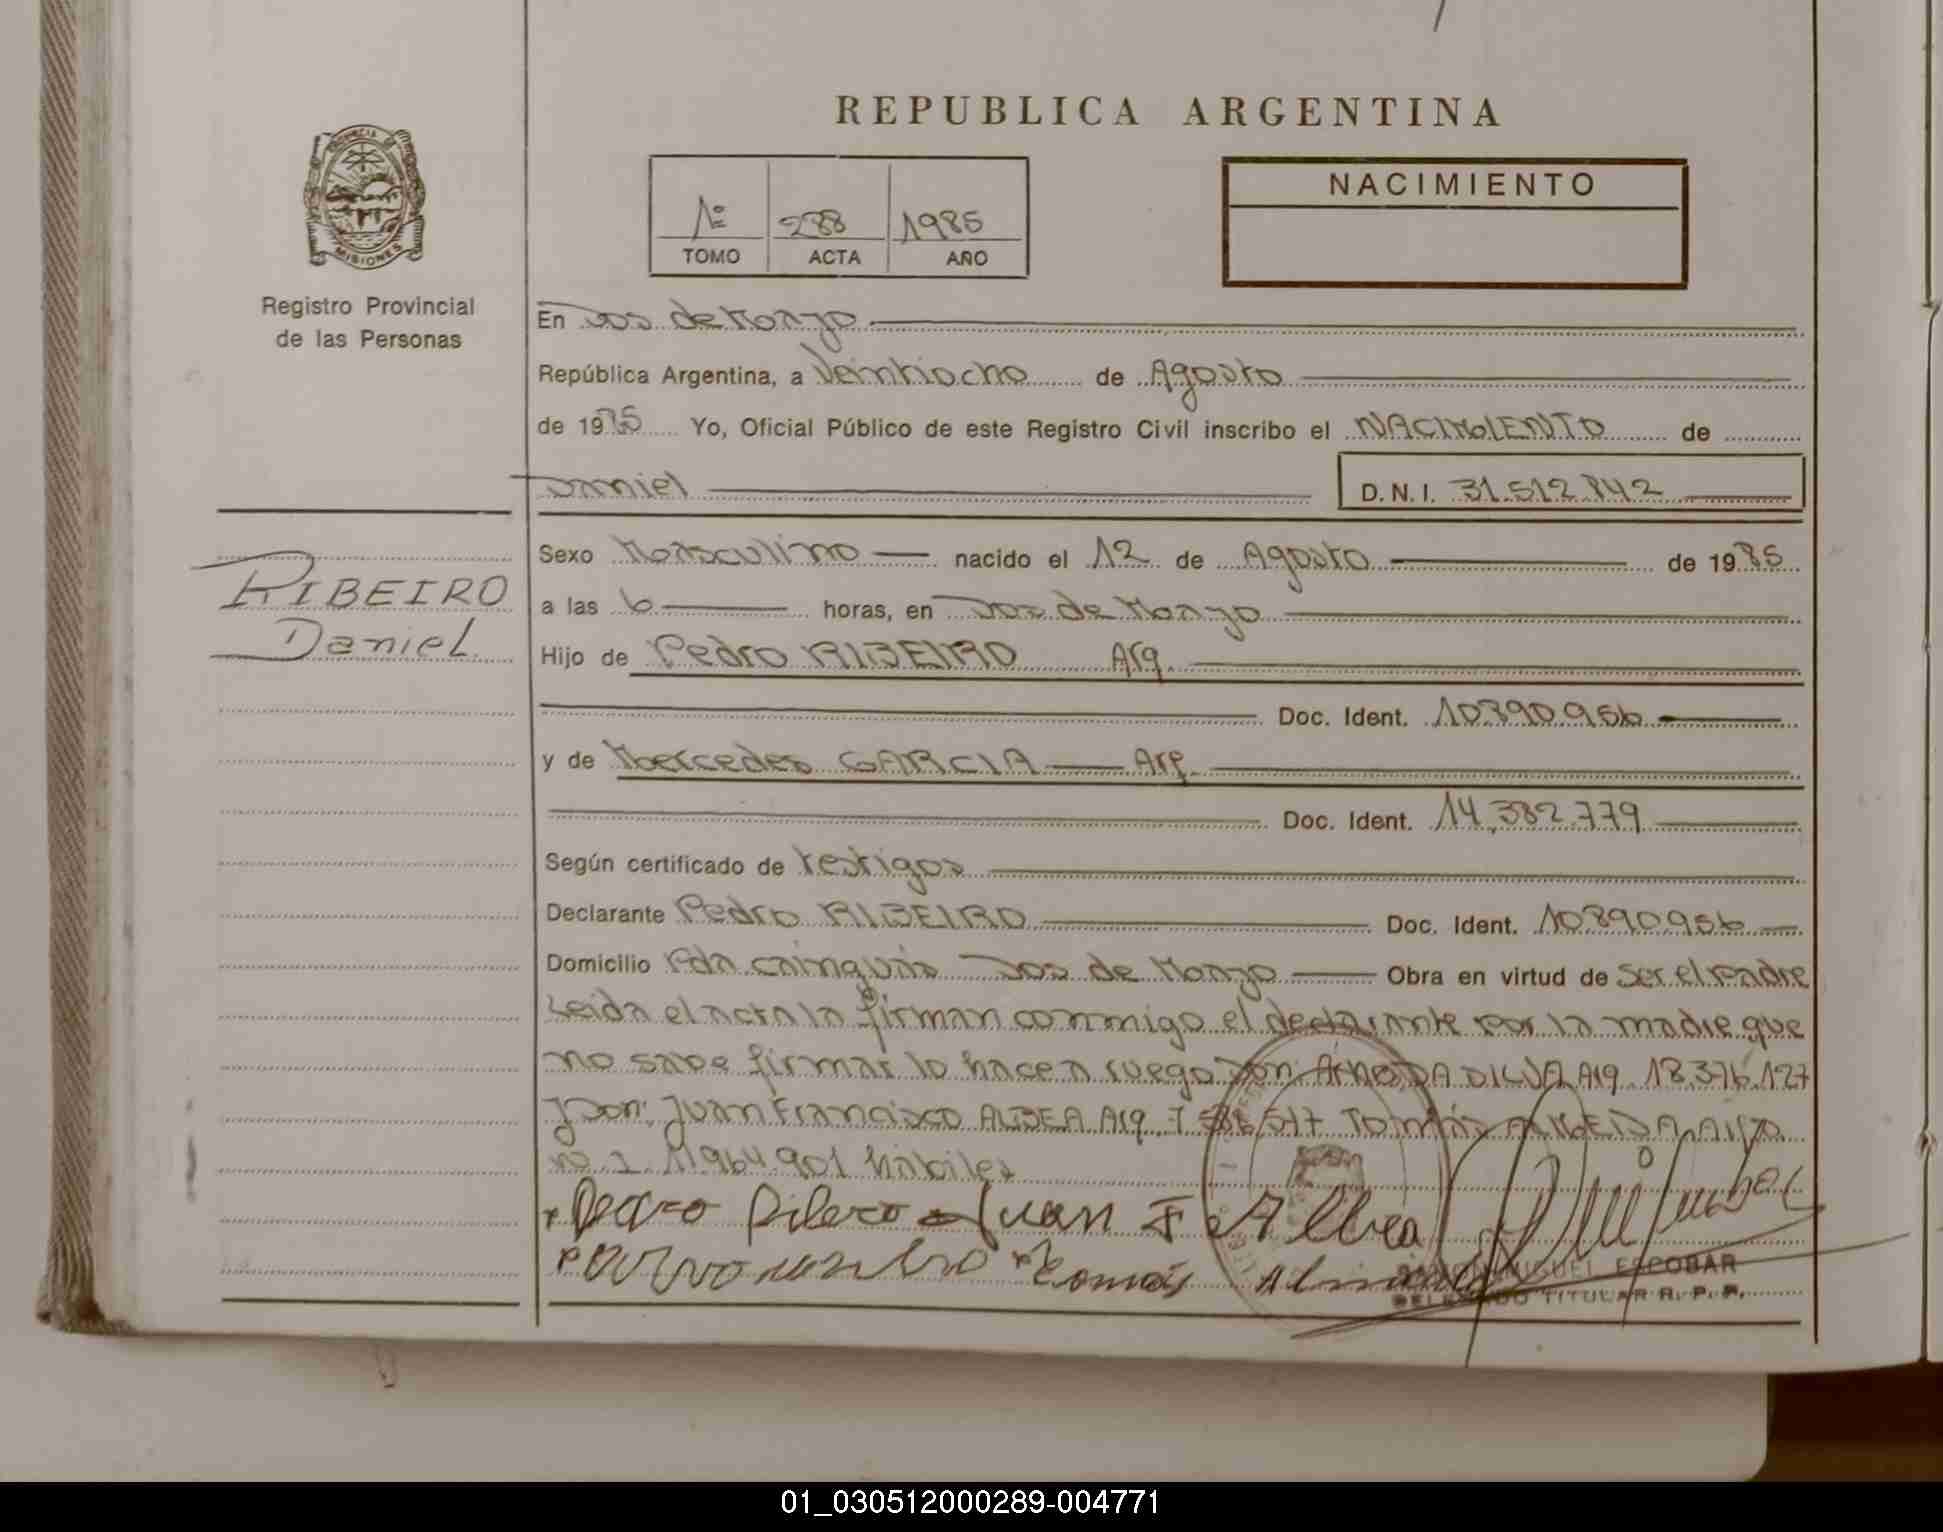 REPUBLICA ARGENTINA
PROVINCIA
MISIONES
Registro Provincial
de las Personas
1º 288 1985
TOMO ACTA AÑO
NACIMIENTO
En Dos de Mayo
República Argentina, a Veintiocho de Agosto
de 1985 Yo, Oficial Público de este Registro Civil inscribo el NACIMIENTO de
Daniel D.N.I. 31.512.842
RIBEIRO
Daniel
Sexo Masculino nacido el 12 de Agosto de 1985
a las 6 horas, en Dos de Mayo
Hijo de Pedro RIBEIRO Arg.
Doc. Ident. 10890956
y de Mercedes GARCIA Arg.
Doc. Ident. 14.382.779
Según certificado de testigos
Declarante Pedro RIBEIRO Doc. Ident. 10890956
Domicilio Pda cainguás Dos de Mayo Obra en virtud de ser el Padre
Leida el acta la firman conmigo el declarante por la madre que
no sabe firmar lo hace a ruego Don: DA DILVA Arg. 18.376.127
y Don: Juan Francisco ALBEA Arg. 7 517 Tomás ALMEIDA
11964.901 habiles
Pedro Ribero Juan F Albea
Tomás Almeida
MIGUEL ESCOBAR
DELEGADO TITULAR R. P. P.
01_030512000289-004771